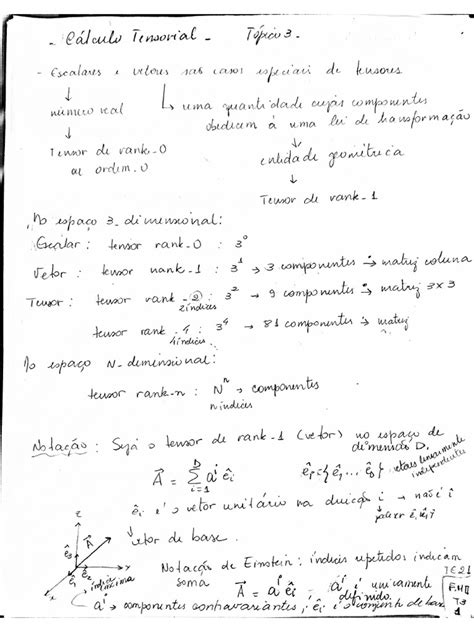 - Cálculo Tensorial - Tópico 3.
- Escalares e vetores são casos especiais de tensores
número real
uma quantidade cujas componentes
obedecem à uma lei de transformação
Tensor de rank-0
ou ordem-0
entidade geométrica
Tensor de rank-1
No espaço 3-dimensional:
Escalar: tensor rank-0 : 3⁰
Vetor: tensor rank-1 : 3¹ → 3 componentes → matriz coluna
Tensor: tensor rank-2 : 3² → 9 componentes → matriz 3x3
2 índices
tensor rank-4 : 3⁴ → 81 componentes → matriz
4 índices
No espaço N-dimensional:
tensor rank-n : Nⁿ → componentes
n índices
Notação: Seja o tensor de rank-1 (vetor) no espaço de
dimensão D.
A⃗ = Σ_{i=1}^{D} aⁱ ê_i
ê_i = {ê_1 ... ê_D} vetores linearmente
independentes
ê_i é o vetor unitário na direção i → não é i
vetor de base.
Notação de Einstein: índices repetidos indicam
soma
A⃗ = aⁱ ê_i , aⁱ é unicamente
definido.
aⁱ → componentes contravariantes, ê_i é o conjunto de base
z
A⃗
ê_3
ê_1
ê_2
x
y
TE21
F.MII
T3
1